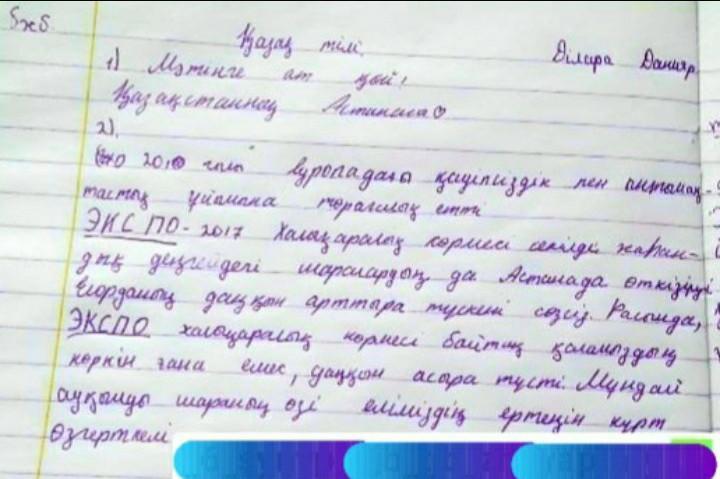 5ж5
Қазақ тілі.
Ділара Данияр
1) Мәтінге ат қой!
Қазақстанның Астанасы♡
2).
2010 жылы Еуропадағы қауіпсіздік пен ынтымақ-
тастық ұйымына төрағалық етті
ЭКСПО-2017 Халықаралық көрмесі секілді жаһан-
дық деңгейдегі шаралардың да Астанада өткізілуі
Елорданың даңқын арттыра түскені сөзсіз. Расында,
ЭКСПО халықаралық көрмесі байтақ қаламыздың
көркін ғана емес, даңқын асыра түсті. Мұндай
ауқымды шараның өзі еліміздің ертеңін күрт
өзгерткелі